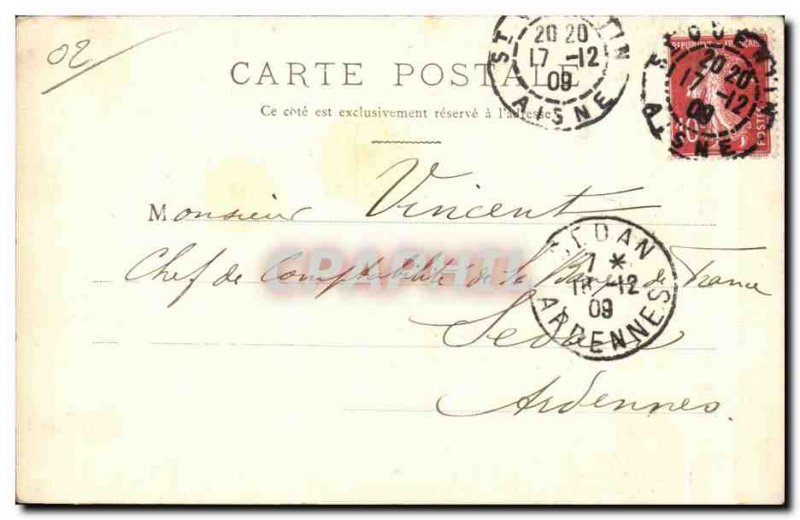 02
CARTE POSTALE
Ce côté est exclusivement réservé à l'adresse
ST QUENTIN
20 20
17 -12
09
AISNE
ST QUENTIN
20 20
17 -12
09
AISNE
10
POSTES
Monsieur Vincent
Chef de Comptabilité de la Banque de France
Sedan
Ardennes
SEDAN
7 *
18 -12
09
ARDENNES
CPAPHIL